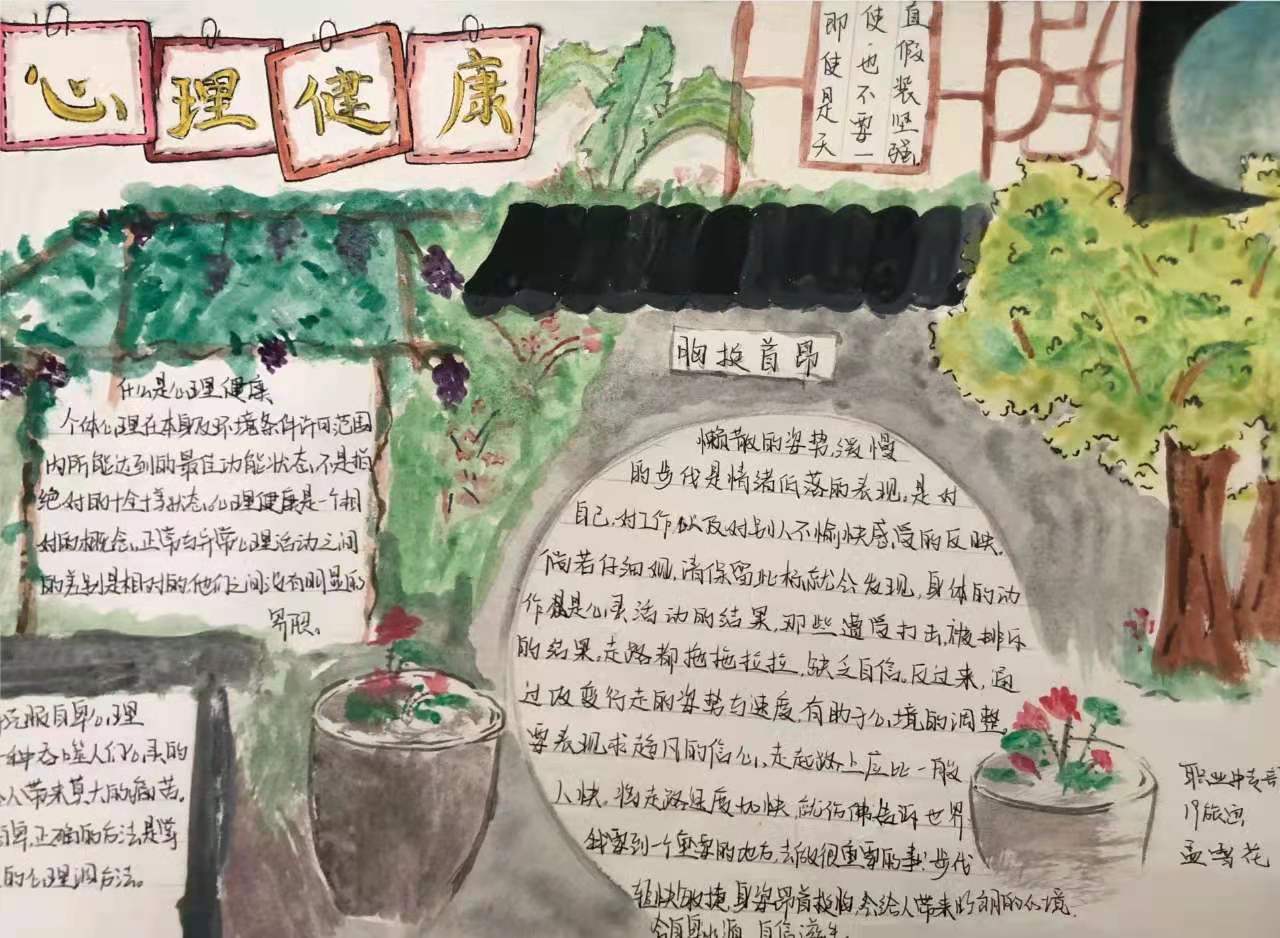 心理健康
直假装坚强,
使也不要一
即使是天
什么是心理健康
个体心理在本身及环境条件许可范围
内所能达到的最佳功能状态,不是指
绝对的十全十美状态。心理健康是一个相
对的概念,正常与异常心理活动之间
的差别是相对的,他们之间没有明显的
界限。
克服自卑心理
一种吞噬人们心灵的
人带来莫大的痛苦。
自卑,正确的方法是掌
的心理调方法。
胸挺首昂
懒散的姿势,缓慢
的步伐是情绪低落的表现。是对
自己,对工作以及对别人不愉快感受的反映。
倘若仔细观,清保留此标就会发现,身体的动
作是心灵活动的结果,那些遭受打击,被排斥
的结果,走路都拖拖拉拉,缺乏自信。反过来,通
过改变行走的姿势与速度,有助于心境的调整。
要表现求超凡的信心,走起路上应比一般
人快。将走路速度加快,就仿佛告诉世界
我要到一个重要的地方,去做很重要的事!步伐
轻快敏捷,身姿昂首挺胸,会给人带来明朗的心境.
自信滋生
职业中专部
19旅
孟雪花